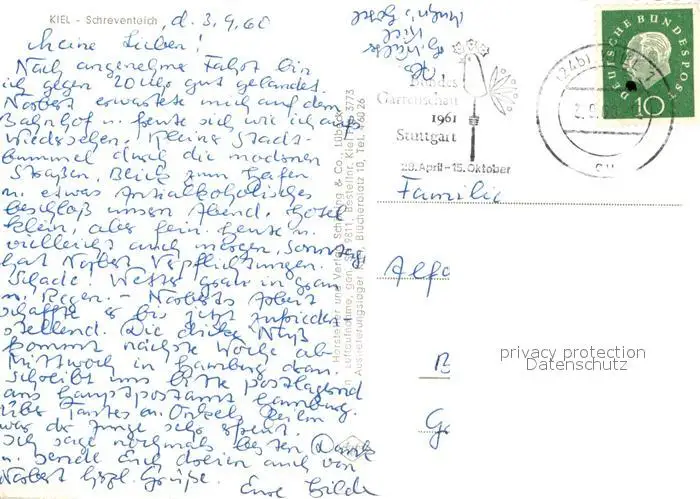 KIEL - Schreventeich, d. 3.9.60
Meine Lieben!
Nach angenehmer Fahrt bin
ich gegen 20 Uhr gut gelandet.
Norbert erwartete mich auf dem
Bahnhof u. freute sich wie ich aufs
Wiedersehen. Kleine Stadt-
bummel durch die modernen
Straßen, Blick zum Hafen
u. etwas Antialkoholisches
beschloß unsern Abend. Hotel
klein, aber fein. Heute u.
vielleicht auch morgen, Sonntag,
hat Norbert Verpflichtungen.
Schade. Wetter grau in grau
u. Regen. - Norberts Arbeit
schaffte er bis jetzt zufrieden-
stellend. Die dicke Nuß
kommt nächste Woche ab
Mittwoch in Hamburg dran.
Schreibt uns bitte postlagernd
ans Hauptpostamt Hamburg.
Über Tantes u. Onkels
war der Junge sehr erfreut.
Ich sage nochmals besten Dank
u. sende Euch dreien auch von
Norbert herzl. Grüße.
Eure Hilde
Hersteller und Verlag: Schöning & Co., Lübeck
Luftaufnahme, gen. SH 9811, Bestellnr. Kiel L 3773
Auslieferungslager Kiel, Blücherplatz 10, Tel. 46026
Bundes
Gartenschau
1961
Stuttgart
28. April - 15. Oktober
DEUTSCHE BUNDESPOST
10
Familie
Alfo
B
G
privacy protection
Datenschutz